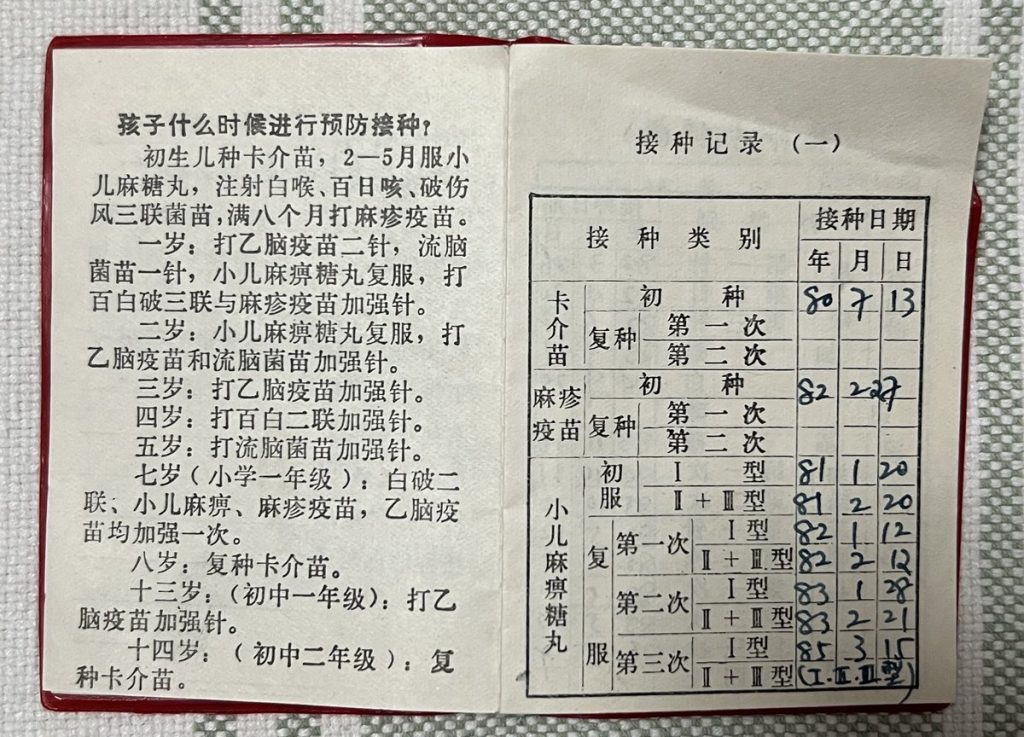 孩子什么时候进行预防接种？
初生儿种卡介苗，2—5月服小
儿麻糖丸，注射白喉、百日咳、破伤
风三联菌苗，满八个月打麻疹疫苗。
一岁：打乙脑疫苗二针，流脑
菌苗一针，小儿麻痹糖丸复服，打
百白破三联与麻疹疫苗加强针。
二岁：小儿麻痹糖丸复服，打
乙脑疫苗和流脑菌苗加强针。
三岁：打乙脑疫苗加强针。
四岁：打百白二联加强针。
五岁：打流脑菌苗加强针。
七岁（小学一年级）：白破二
联、小儿麻痹、麻疹疫苗，乙脑疫
苗均加强一次。
八岁：复种卡介苗。
十三岁：（初中一年级）：打乙
脑疫苗加强针。
十四岁：（初中二年级）：复
种卡介苗。
接种记录（一）
接种类别 接种日期
年 月 日
卡介苗 初种 80 7 13
复种 第一次
第二次
麻疹疫苗 初种 82 2 27
复种 第一次
第二次
小儿麻痹糖丸 初服 Ⅰ型 81 1 20
Ⅱ+Ⅲ型 81 2 20
复服 第一次 Ⅰ型 82 1 12
Ⅱ+Ⅲ型 82 2 12
第二次 Ⅰ型 83 1 28
Ⅱ+Ⅲ型 83 2 21
第三次 Ⅰ型 85 3 15
Ⅱ+Ⅲ型 (Ⅰ.Ⅱ.Ⅲ型)